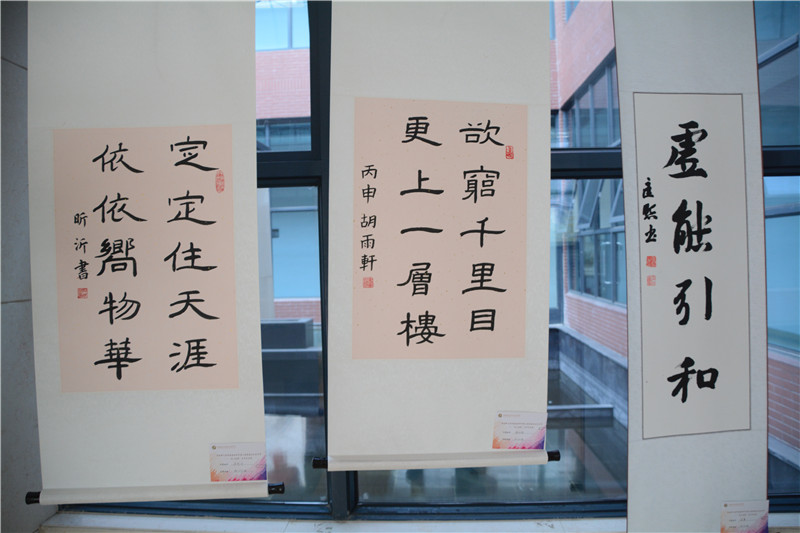 㝎定住天涯
依依嚮物華
昕沂書
欲窮千里目
更上一層樓
丙申 胡雨軒
虛能引和